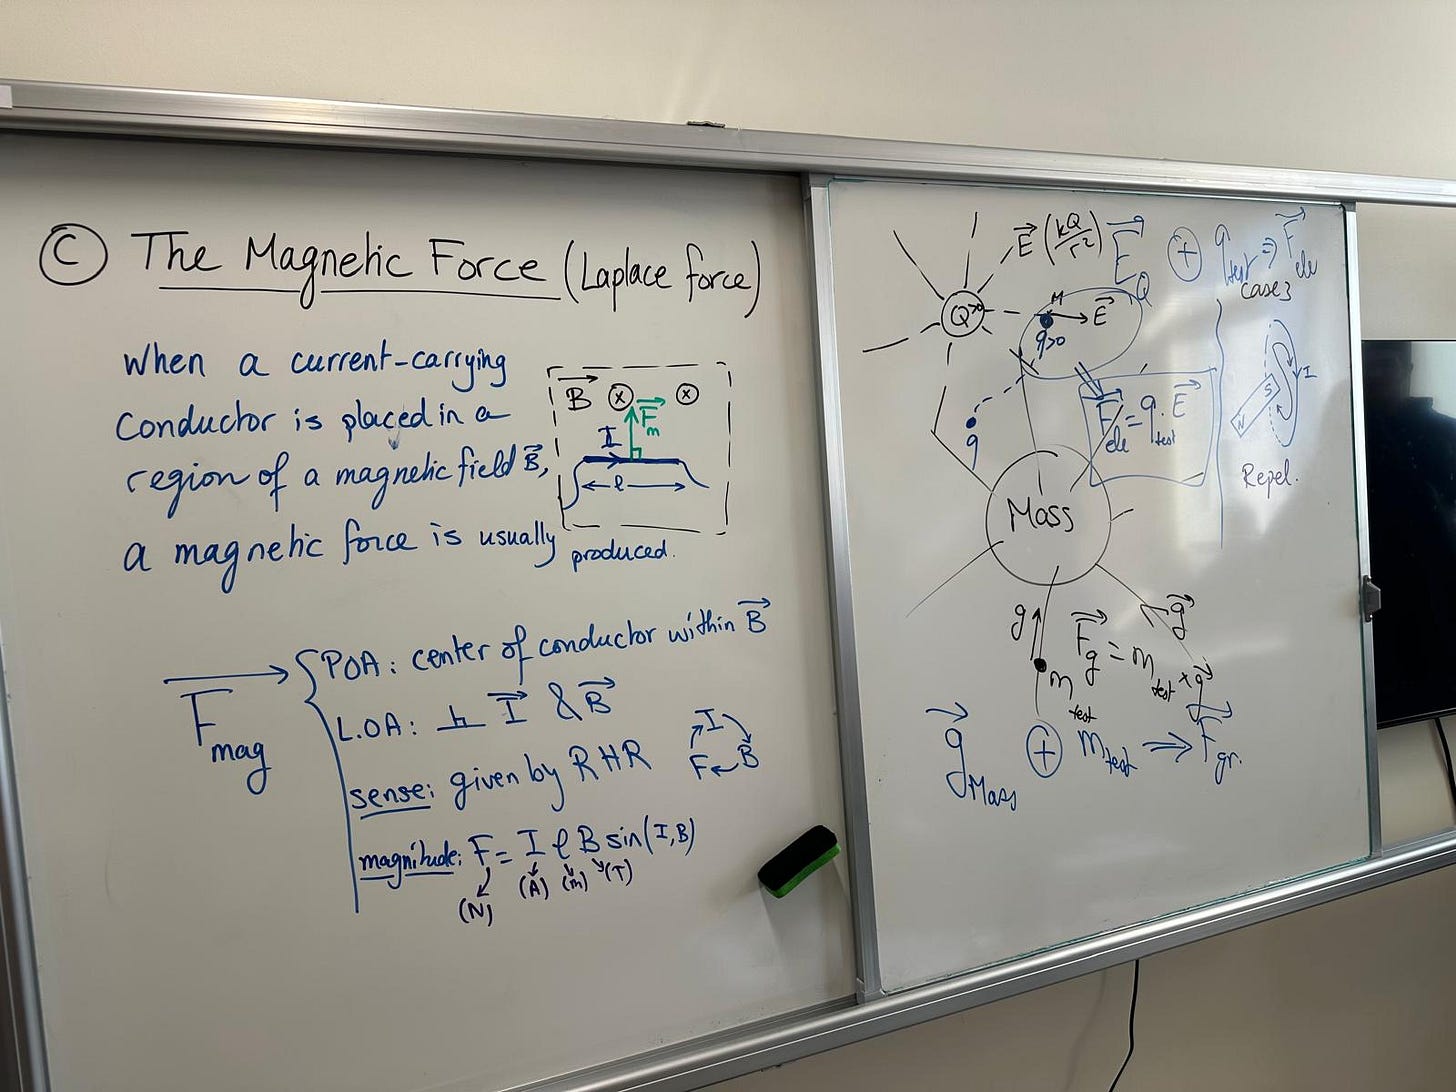 Ⓒ The Magnetic Force (Laplace force)
When a current-carrying
conductor is placed in a
region of a magnetic field B⃗,
a magnetic force is usually produced.
B⃗ ⓧ ⓧ
F⃗m
I
ℓ
F⃗mag
POA: center of conductor within B⃗
L.O.A: ⊥ I⃗ & B⃗
sense: given by RHR
I
F B
magnitude: F = I ℓ B sin(I,B)
(N) (A) (m) (T)
E⃗ (kQ/r²) E⃗Q ⊕ qtest ⇒ F⃗ele
case 3
Q>0 M E⃗
q>0
q
F⃗ele = qtest . E⃗
I
S
N
Repel.
Mass
g
g⃗
F⃗g = mtest × g⃗
mtest
g⃗Mass ⊕ mtest ⇒ F⃗gr.